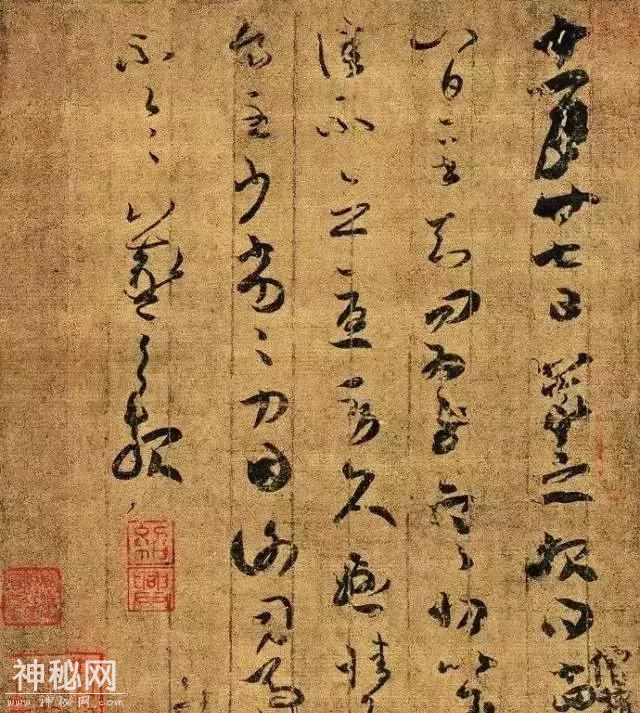 十一月廿七日羲之報得十四
八日二書知問為慰寒切比各
佳不念憂勞久懸情
食至少劣〻力因謝司馬
不一〻羲之報
紹興
神秘网
www.神秘网.com